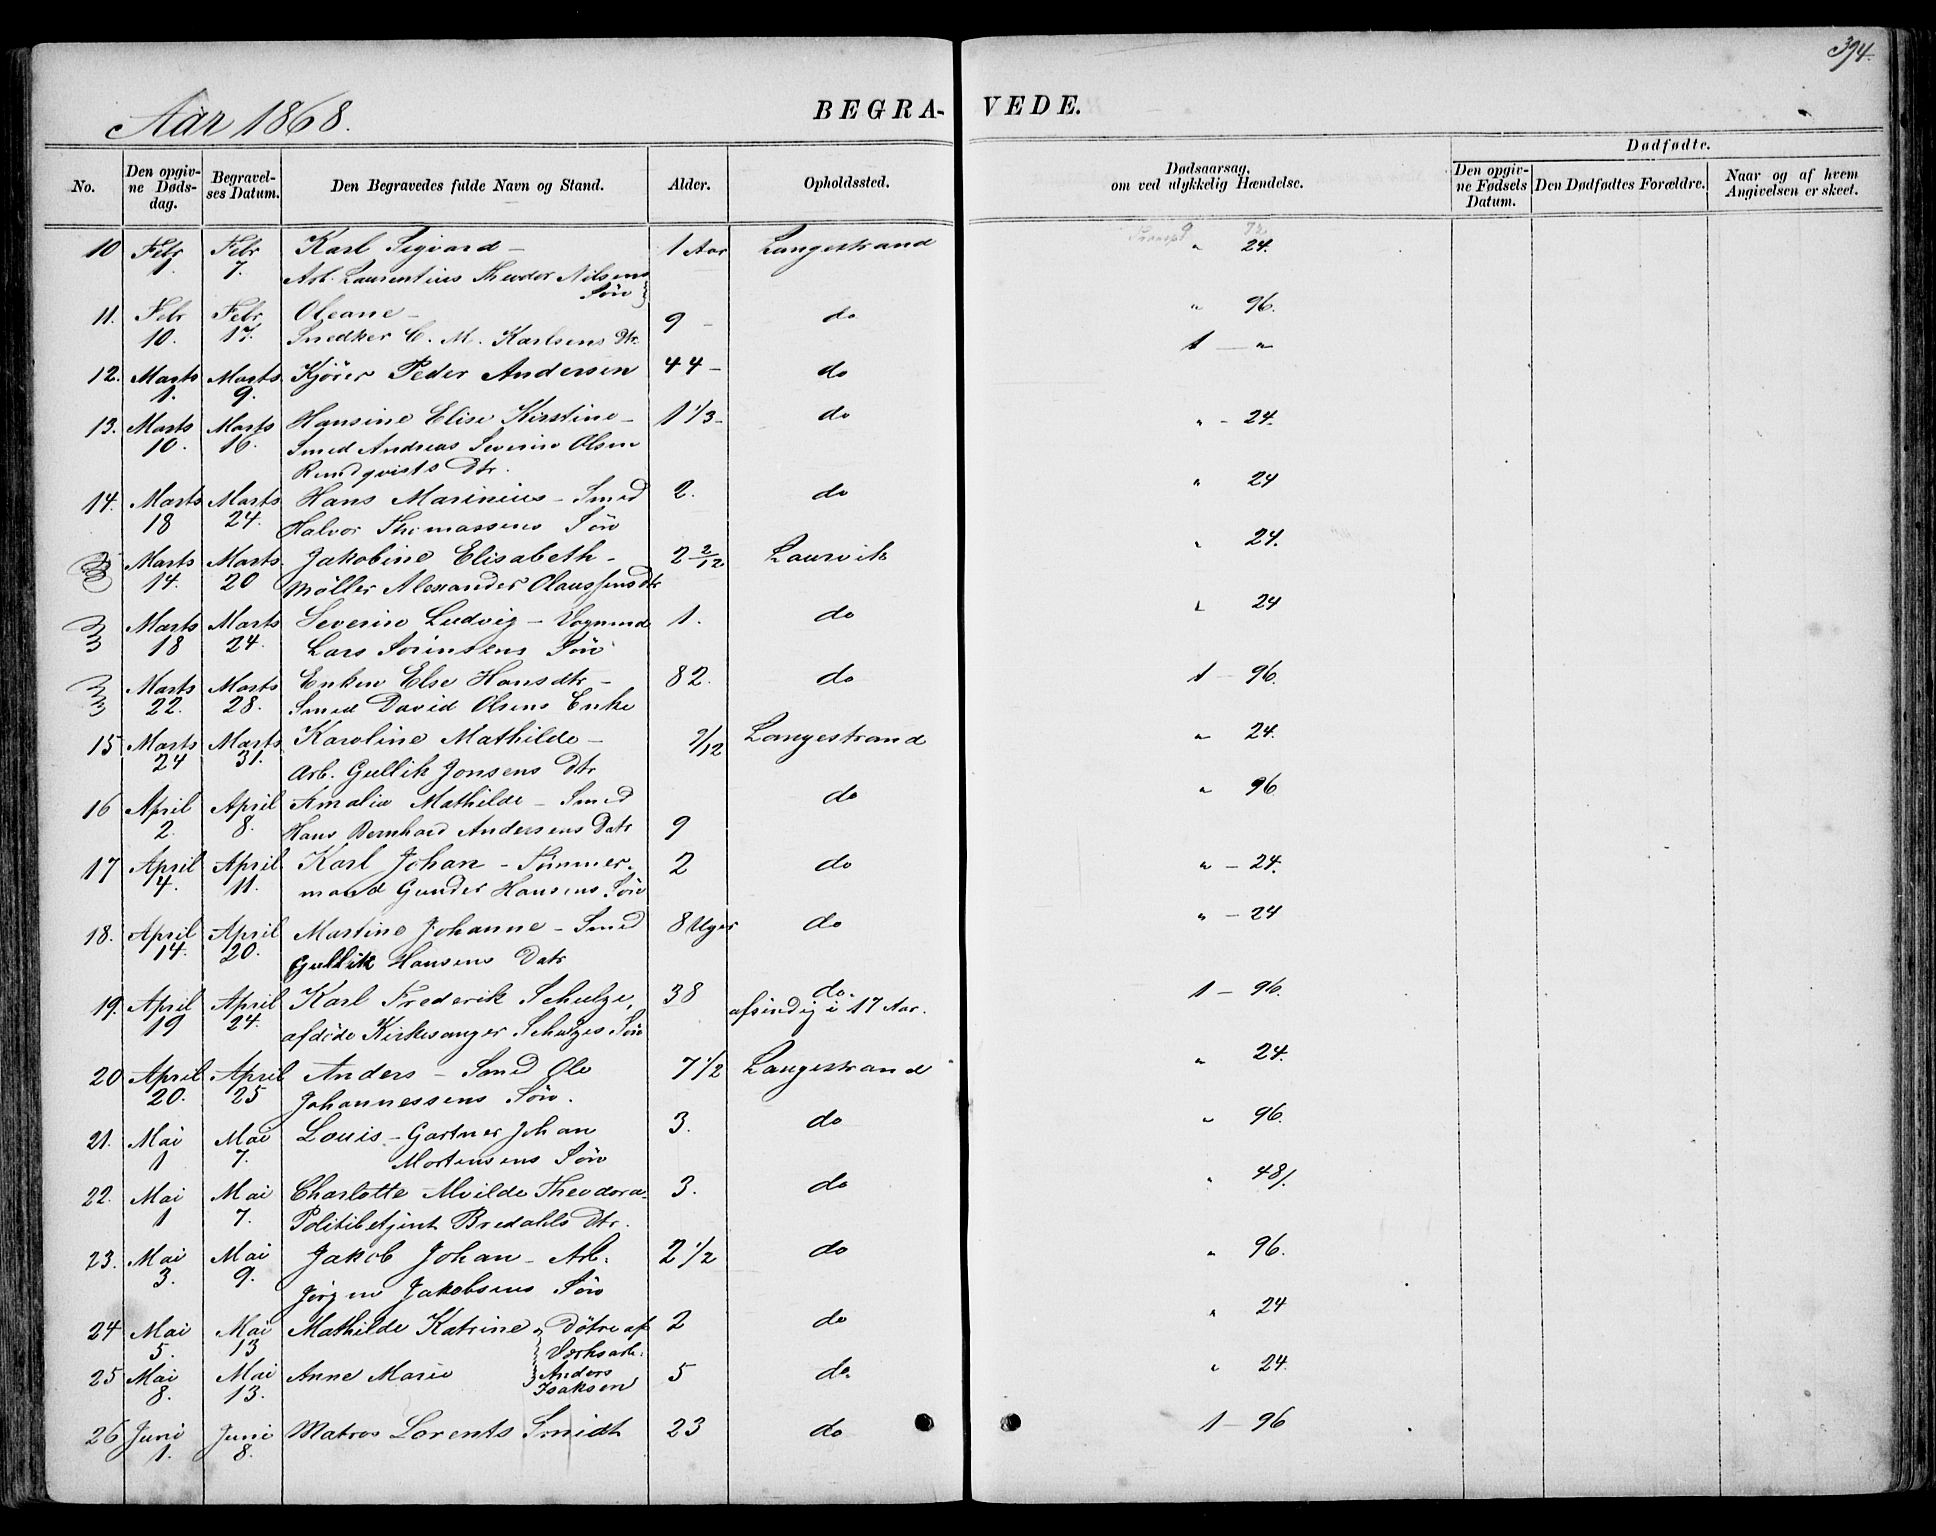 394.
Aar 1868.
BEGRA- VEDE.
No. | Den opgivne Dødsdag. | Begravelses Datum. | Den Begravedes fulde Navn og Stand. | Alder. | Opholdssted. | Dødsaarsag, om ved ulykkelig Hændelse. | Dødfødte. | Den opgivne Fødsels Datum. | Den Dødfødtes Forældre. | Naar og af hvem Angivelsen er skeet.
Transp 9 72
10 Febr 1. Febr 7. Karl Sigvard – 1 Aar Langestrand " 24.
Arb. Laurentius Theodor Nilsens
Søn
11. Febr 10. Febr 17. Oleane – 9 – do " 96.
Snedker C. M. Karlsens Dtr.
12. Marts 1. Marts 9. Kjører Peder Andersen 44 – do 1 – "
13. Marts 10. Marts 16. Hansine Elise Kirstine – 1 1/3 – do " – 24.
Smed Andreas Severin Olsen
Rundqvists Dtr.
14. Marts 18 Marts 24. Hans Marinius – Smed 2. do " 24
Halvor Thomassens Søn
Marts 14. Marts 20 Jakobine Elisabeth – 2 2/12 Laurvik " 24.
Møller Alexander Olaussens Dtr
Marts 18 Marts 24. Severin Ludvig – Vognmd 1. do " 24
Lars Sørensens Søn
Marts 22. Marts 28. Enken Else Hansdtr – 82. do 1 – 96.
Smed David Olsens Enke
15 Marts 24 Marts 31. Karoline Mathilde – 9/12 Langestrand " 24.
Arb. Gullik Jonsens Dtr
16 April 2. April 8. Amalia Mathilde – Smed do " 96
Hans Bernhard Andersens Datr 9
17 April 4. April 11. Karl Johan – Tømmer- 2 do " – 24.
mand Gunder Hansens Søn
18. April 14. April 20. Martine Johanne – Smed 8 Uger do " – 24
Gullik Hansens Datr
19. April 19 April 24. Karl Frederik Schulze, 38 do. 1 – 96.
afdøde Kirkesanger Schulzes Søn afsindig i 17 Aar.
20 April 20. April 25 Anders – Smed Ole 7 1/2 Langestrand " 24.
Johannessens Søn.
21. Mai 1 Mai 7. Louis – Gartner Johan 3. do " 96.
Mortensens Søn
22. Mai 1 Mai 7. Charlotte Alvilde Theodora– 3. do " 48.
Politibetjent Bredahls Dtr.
23. Mai 3. Mai 9. Jakob Johan – Arb. 2 1/2 do " 96.
Jørgen Jakobsens Søn
24 Mai 5. Mai 13 Mathilde Katrine Døtre af 2 do " 24
Værksarb.
25 Mai 8. Mai 13. Anne Marie Anders 5 do " 24.
Isaksen
26 Juni 1. Juni 8. Matros Lorents Smidt 23 do 1 – 96